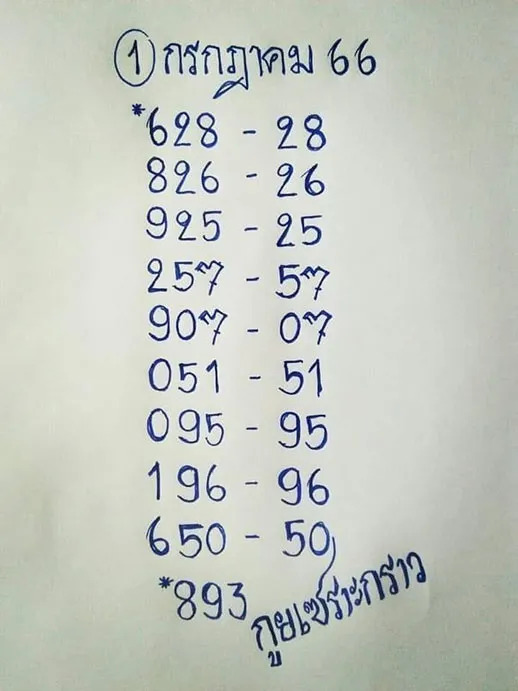 1 กรกฎาคม 66
*628 - 28
826 - 26
925 - 25
257 - 57
907 - 07
051 - 51
095 - 95
196 - 96
650 - 50
*893